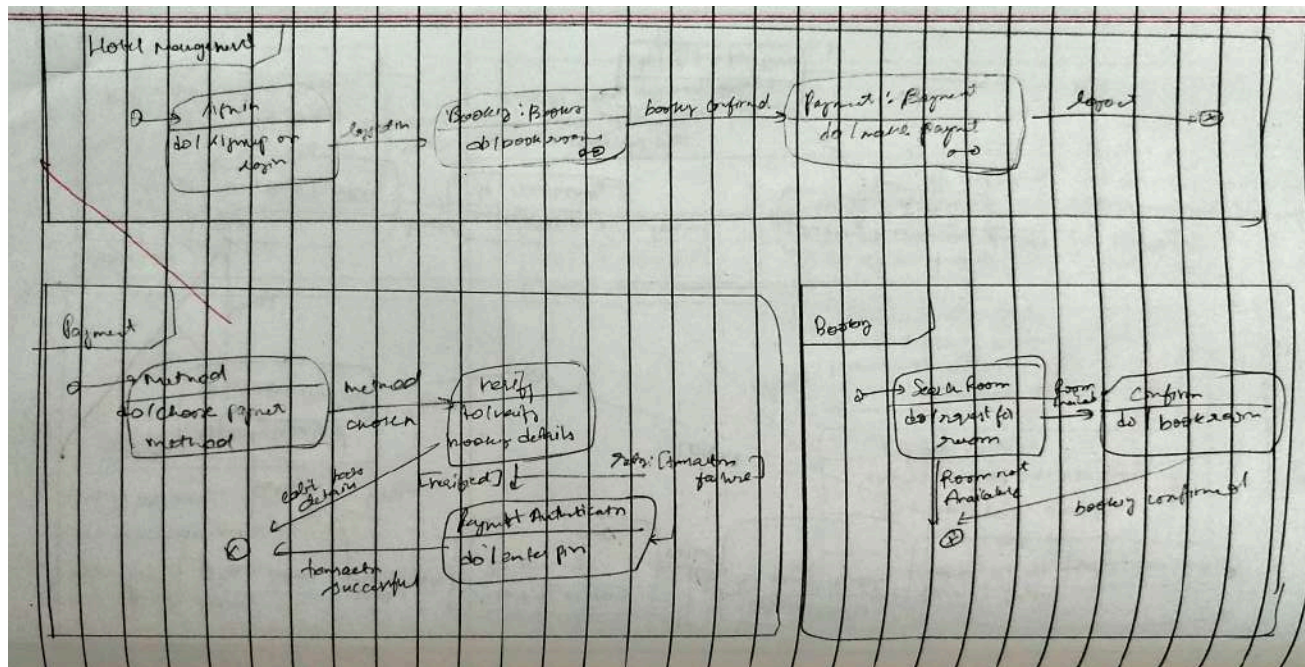 Hotel Management
signin
do/signup or
login
logged in
Booking : Booking
do/bookroom
booking confirmed
Payment : Payment
do/make paymt
logout
Payment
Method
do/choose paymet
method
method
chosen
verify
do/verify
booking details
edit
details
[verified]
[transactn
failure]
Paymett Authenticatn
do/enter pin
transactn
successful
Booking
Search Room
do/request for
room
Room
Confirm
do/bookroom
Room not
Available
booking confirmed